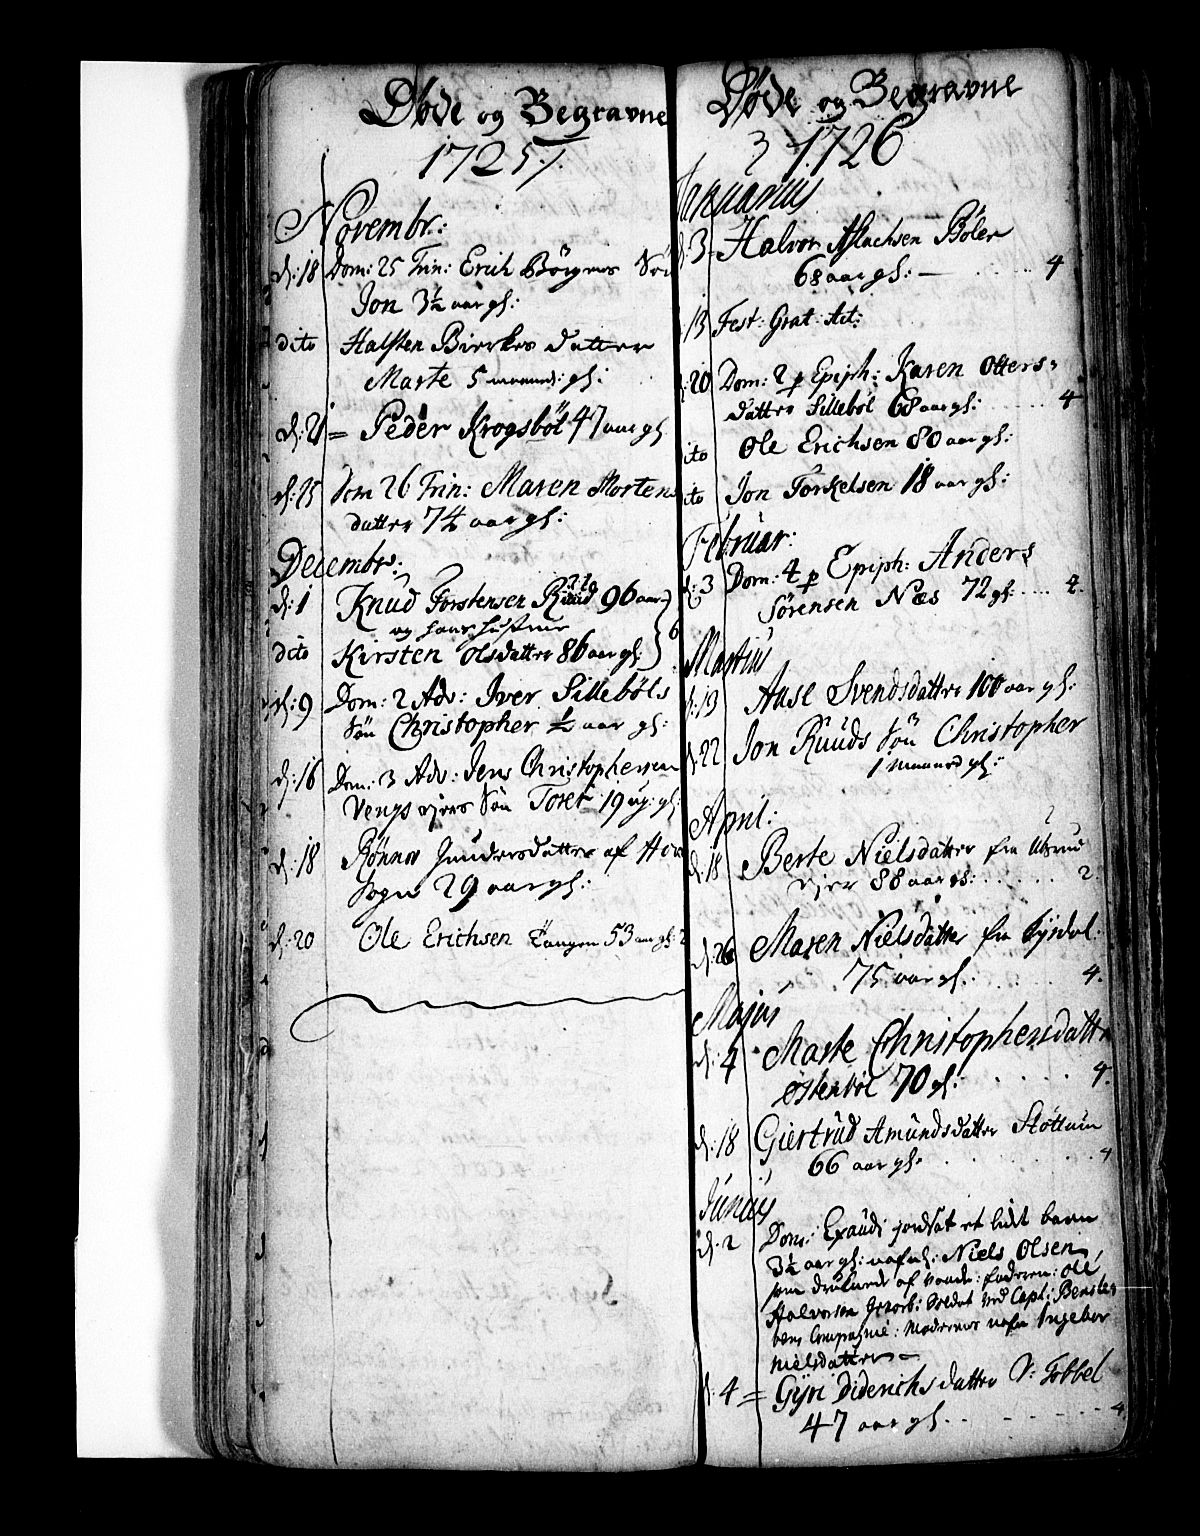 Døde og Begravne
1725
Novembr:
d: 18 Dom: 25 Trin: Erich Børgers Søn
Jon 3½ aar gl:
dito Halsten Bierkes datter
Marte 5 maaned: gl:
d: 21 = Peder Krogsbøl 47 aar gl
d: 25 Dom 26 Trin: Maren Mortens
datter 74 aar gl:
Decembr:
d: 1 Knud Torstensen Ruud 96 aar
og hans hustrue
dito Kirsten Olsdatter 86 aar gl: 6
d: 9 Dom: 2 Adv: Iver Sillebøls
Søn Christopher ½ aar gl:
d: 16 Dom: 3 Adv: Jens Christophersen
Søn Toret 19 ug: gl:
d: 18 Rønnov Gundersdatter af
Sogn 29 aar gl:
d: 20 Ole Erichsen Tangen 53 aar gl: 2
Døde og Begravne
1726
Januarius
d: 3 = Halvor Aslachsen Bøler
68 aar gl: — 4
13 Fest: Grat: Act:
d: 20 Dom: 2 p Epiph: Karen Otters-
datter Sillebøl 68 aar gl: 4
dito Ole Erichsen 80 aar gl:
dito Jon Torkelsen 18 aar gl:
Februar:
d: 3 Dom: 4 p Epiph: Anders
Sørensen Næs 72 gl: 4
Martius
d: 13 Aase Svendsdatter 100 aar gl:
d: 22 Jon Ruuds Søn Christopher
1 maaned gl:
April:
d: 18 Berte Nielsdatter fra
ejer 88 aar gl: 2
d: 26 Maren Nielsdatter fra
75 aar gl: 4.
Majus
d: 4 Marte Christophersdatter
Østenbøl 70 gl: 4.
d: 18 Giertrud Amundsdatter Støttum
66 aar gl: 4
Junius
d: 2 Dom: Exaudi jordsat et lidet barn
3½ aar gl: nafnl: Niels Olsen,
som druknede af Vaade: faderen: Ole
Halvorsen Soldat ved Capt:
Compagnie: Moderens nafn Ingebor
Nielsdatter —
d: 4 = Gyri Diderichsdatter V: Tobbel
47 aar gl. 4